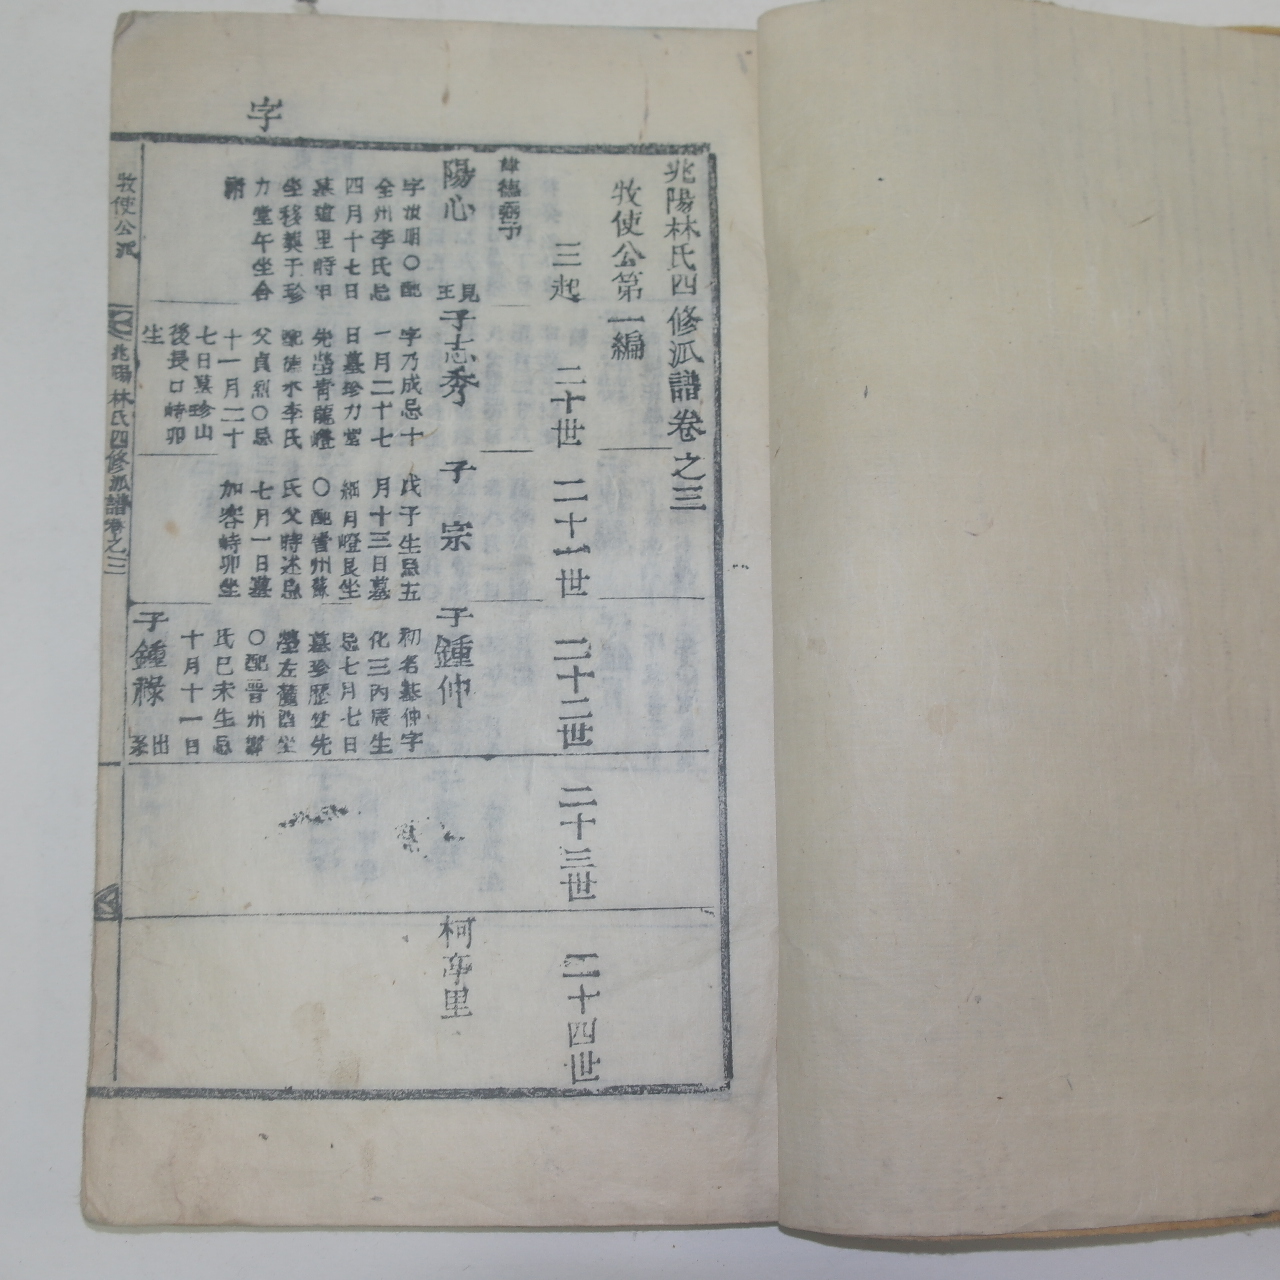 字
兆陽林氏四修派譜卷之三
牧使公第一編
三起
二十世
二十一世
二十二世
二十三世
二十四世
陽心
見
字汝明〇配
全州李氏忌
四月十七日
墓道里時甲
坐移葬于珍
力堂午坐合
子志秀
字乃成忌十
一月二十七
日墓珍力堂
先塋靑龍嶝
配德水李氏
父貞烈〇忌
十一月二十
七日墓珍山
後長口峙卯
生
子宗
戊子生忌五
月十三日墓
細月嶝艮坐
〇配晋州蘇
氏父時述忌
七月一日墓
加客峙卯坐
子鍾仲
初名基仲字
化三丙辰生
忌七月七日
墓珍歷使先
塋左麓酉坐
〇配晋州鄭
氏己未生忌
十月十一日
子鍾祿
出
系
柯亭里
牧使公派
兆陽林氏四修派譜卷之三